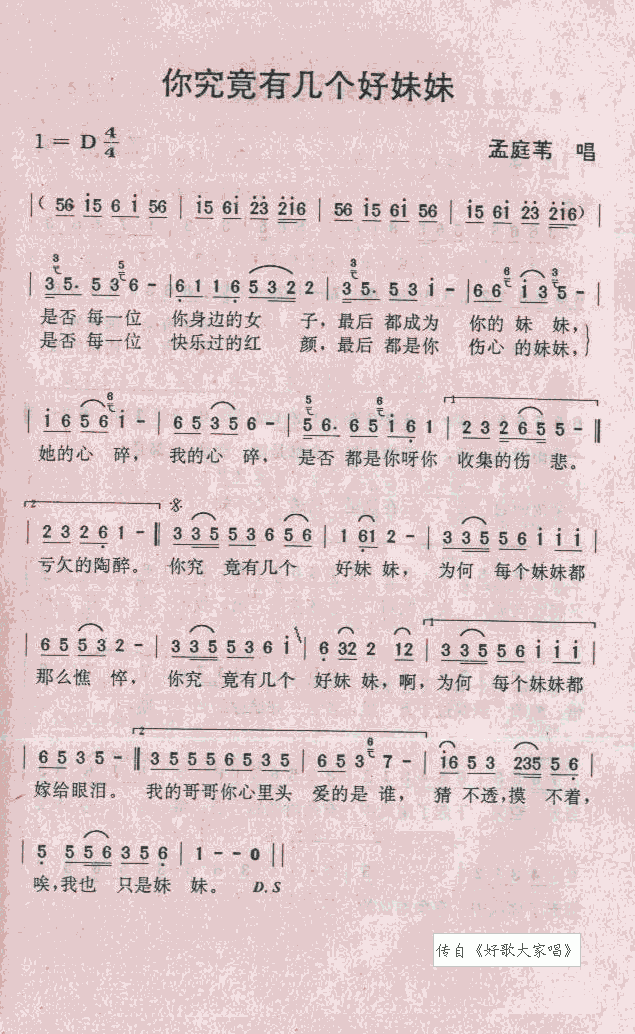 你究竟有几个好妹妹
1 = D 4/4
孟庭苇 唱
|( 56 i5 6 i 56 | i5 6i 23 2i6 | 56 i5 6i 56 | i5 6i 23 2i6 ) |
| 3 5· 5 3 6 - | 6 1 1 6 5 3 2 2 | 3 5· 5 3 i - | 6 6 i 3 5 - |
是否 每一位 你身边的女 子，最后 都成为 你的 妹 妹，
是否 每一位 快乐过的红 颜，最后 都是你 伤心 的妹妹，
| i 6 5 6 i - | 6 5 3 5 6 - | 5 6· 6 5 i 6 1 | 2 3 2 6 5 5 - ‖
她的心 碎，我的心 碎，是否 都是你呀你 收集的伤 悲。
| 2 3 2 6 1 - ‖ 3 3 5 5 3 6 5 6 | 1 61 2 - | 3 3 5 5 6 i i i |
亏欠的陶醉。 你究 竟有几个 好妹妹，为何 每个妹妹都
| 6 5 5 3 2 - | 3 3 5 5 3 6 i | 6 32 2 12 | 3 3 5 5 6 i i i |
那么憔 悴，你究 竟有几个 好妹妹，啊，为何 每个妹妹都
| 6 5 3 5 - ‖ 3 5 5 5 6 5 3 5 | 6 5 3 7 - | i6 5 3 235 5 6 |
嫁给眼泪。 我的哥哥你心里头 爱的是 谁，猜 不透，摸 不着，
| 5 5 5 6 3 5 6 | 1 - - 0 ||
唉，我也 只是妹 妹。 D.S
传自《好歌大家唱》